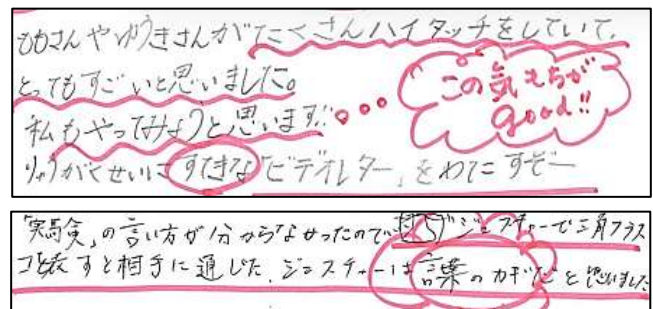 ももさんやゆうきさんがたくさんハイタッチをしていて、
とってもすごいと思いました。
私もやってみようと思います!!
この気もちが
good!!
りゅうがくせいにすてきな「ビデオレター」をわたすぞー
「実験」の言い方が分からなかったので ジェスチャーで三角フラス
コを表すと相手に通じた。ジェスチャーは言葉のカギだと思いました